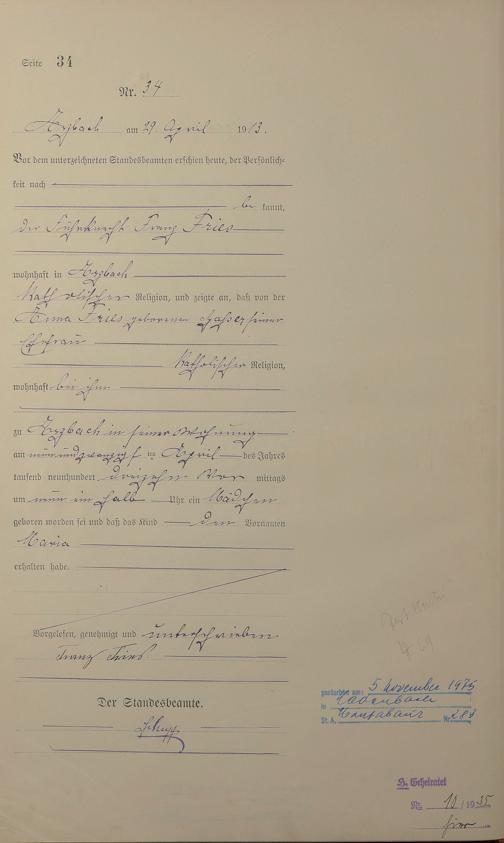 Seite 34
Nr. 34
Arzbach am 29. April 1913.
Vor dem unterzeichneten Standesbeamten erschien heute, der Persönlich-
keit nach
be kannt,
der Fuhrknecht Franz Fries
wohnhaft in Arzbach
katholischer Religion, und zeigte an, daß von der
Anna Fries geborenen seiner
Ehefrau
katholischer Religion,
wohnhaft bei ihm
zu Arzbach in seiner Wohnung
am neunundzwanzigsten April des Jahres
tausend neunhundert dreizehn Vor mittags
um neun ein halb Uhr ein Mädchen
geboren worden sei und daß das Kind den Vornamen
Maria
erhalten habe.
Vorgelesen, genehmigt und unterschrieben
Franz Fries.
Der Standesbeamte.
gestorben am: 5 November 1975
in
St. A. Montabaur Nr. 289
H. Geheiratet
Nr. 10/1935
hier